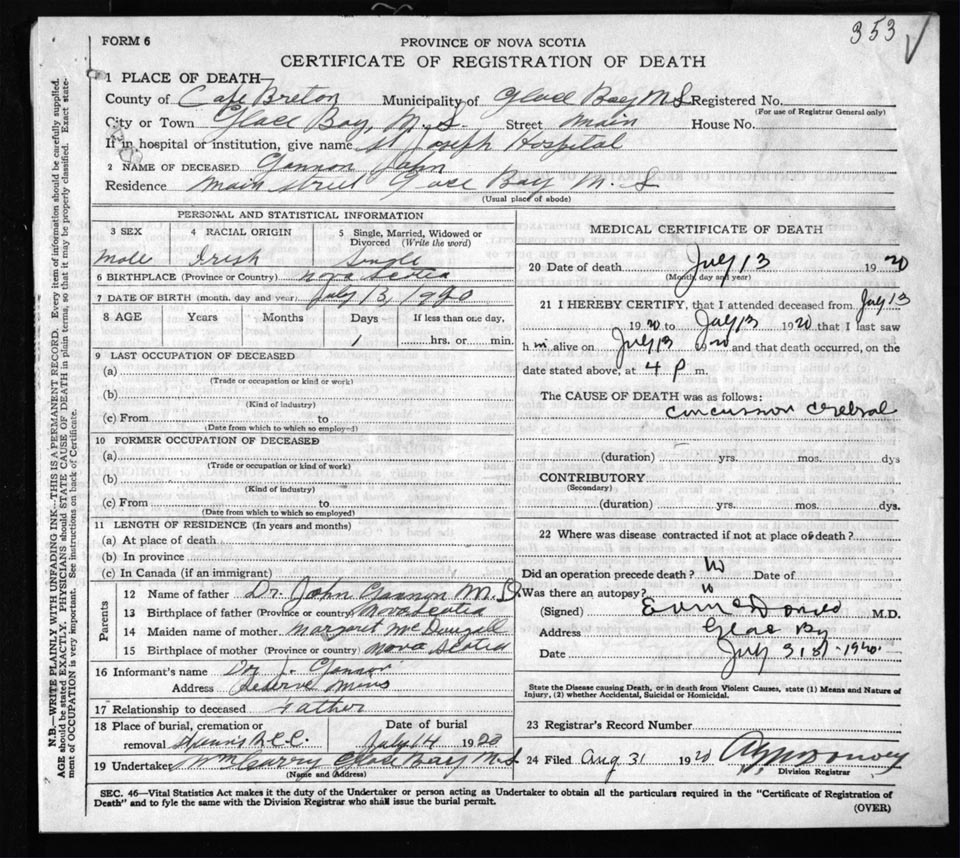 353 ✓
FORM 6
PROVINCE OF NOVA SCOTIA
CERTIFICATE OF REGISTRATION OF DEATH
1 PLACE OF DEATH—
County of Cape Breton Municipality of Glace Bay N.S Registered No.
(For use of Registrar General only)
City or Town Glace Bay, N.S. Street Main House No.
If in hospital or institution, give name St Joseph Hospital
2 NAME OF DECEASED Gannon John
Residence Main Street Glace Bay N. S
(Usual place of abode)
PERSONAL AND STATISTICAL INFORMATION
3 SEX
4 RACIAL ORIGIN
5 Single, Married, Widowed or Divorced (Write the word)
Male Irish Single
6 BIRTHPLACE (Province or Country) Nova Scotia
7 DATE OF BIRTH (month, day and year) July 13, 1920
8 AGE Years Months Days If less than one day,
1 hrs. or min.
9 LAST OCCUPATION OF DECEASED
(a)
(Trade or occupation or kind or work)
(b)
(Kind of industry)
(c) From to
(Date from which to which so employed)
10 FORMER OCCUPATION OF DECEASED
(a)
(Trade or occupation or kind of work)
(b)
(Kind of industry)
(c) From to
(Date from which to which so employed)
11 LENGTH OF RESIDENCE (In years and months)
(a) At place of death
(b) In province
(c) In Canada (if an immigrant)
Parents
12 Name of father Dr. John Gannon M. D.
13 Birthplace of father (Province or country) Nova Scotia
14 Maiden name of mother Margaret McDougall
15 Birthplace of mother (Province or country) Nova Scotia
16 Informant's name Dr J. Gannon
Address Reserve Mines
17 Relationship to deceased Father
18 Place of burial, cremation or Date of burial
removal July 14 1920
19 Undertaker Glace Bay N.S
(Name and Address)
MEDICAL CERTIFICATE OF DEATH
20 Date of death July 13 1920
(Month, day and year)
21 I HEREBY CERTIFY, that I attended deceased from July 13
1920 to July 13 1920 that I last saw
h im alive on July 13 1920 and that death occurred, on the
date stated above, at 4 P m.
The CAUSE OF DEATH was as follows:
concussion cerebral
(duration) yrs. mos. dys
CONTRIBUTORY
(Secondary)
(duration) yrs. mos. dys.
22 Where was disease contracted if not at place of death?
Did an operation precede death? No Date of
Was there an autopsy? No
(Signed) M.D.
Address Glace Bay
Date July 31st 1920
State the Disease causing Death, or in death from Violent Causes, state (1) Means and Nature of
Injury, (2) whether Accidental, Suicidal or Homicidal.
23 Registrar's Record Number
24 Filed Aug 31 1920
Division Registrar
SEC. 46—Vital Statistics Act makes it the duty of the Undertaker or person acting as Undertaker to obtain all the particulars required in the "Certificate of Registration of
Death" and to fyle the same with the Division Registrar who shall issue the burial permit. (OVER)
N.B.—WRITE PLAINLY WITH UNFADING INK—THIS IS A PERMANENT RECORD. Every item of information should be carefully supplied.
AGE should be stated EXACTLY. PHYSICIANS should STATE CAUSE OF DEATH in plain terms, so that it may be properly classified. Exact state-
ment of OCCUPATION is very important. See instructions on back of Certificate.